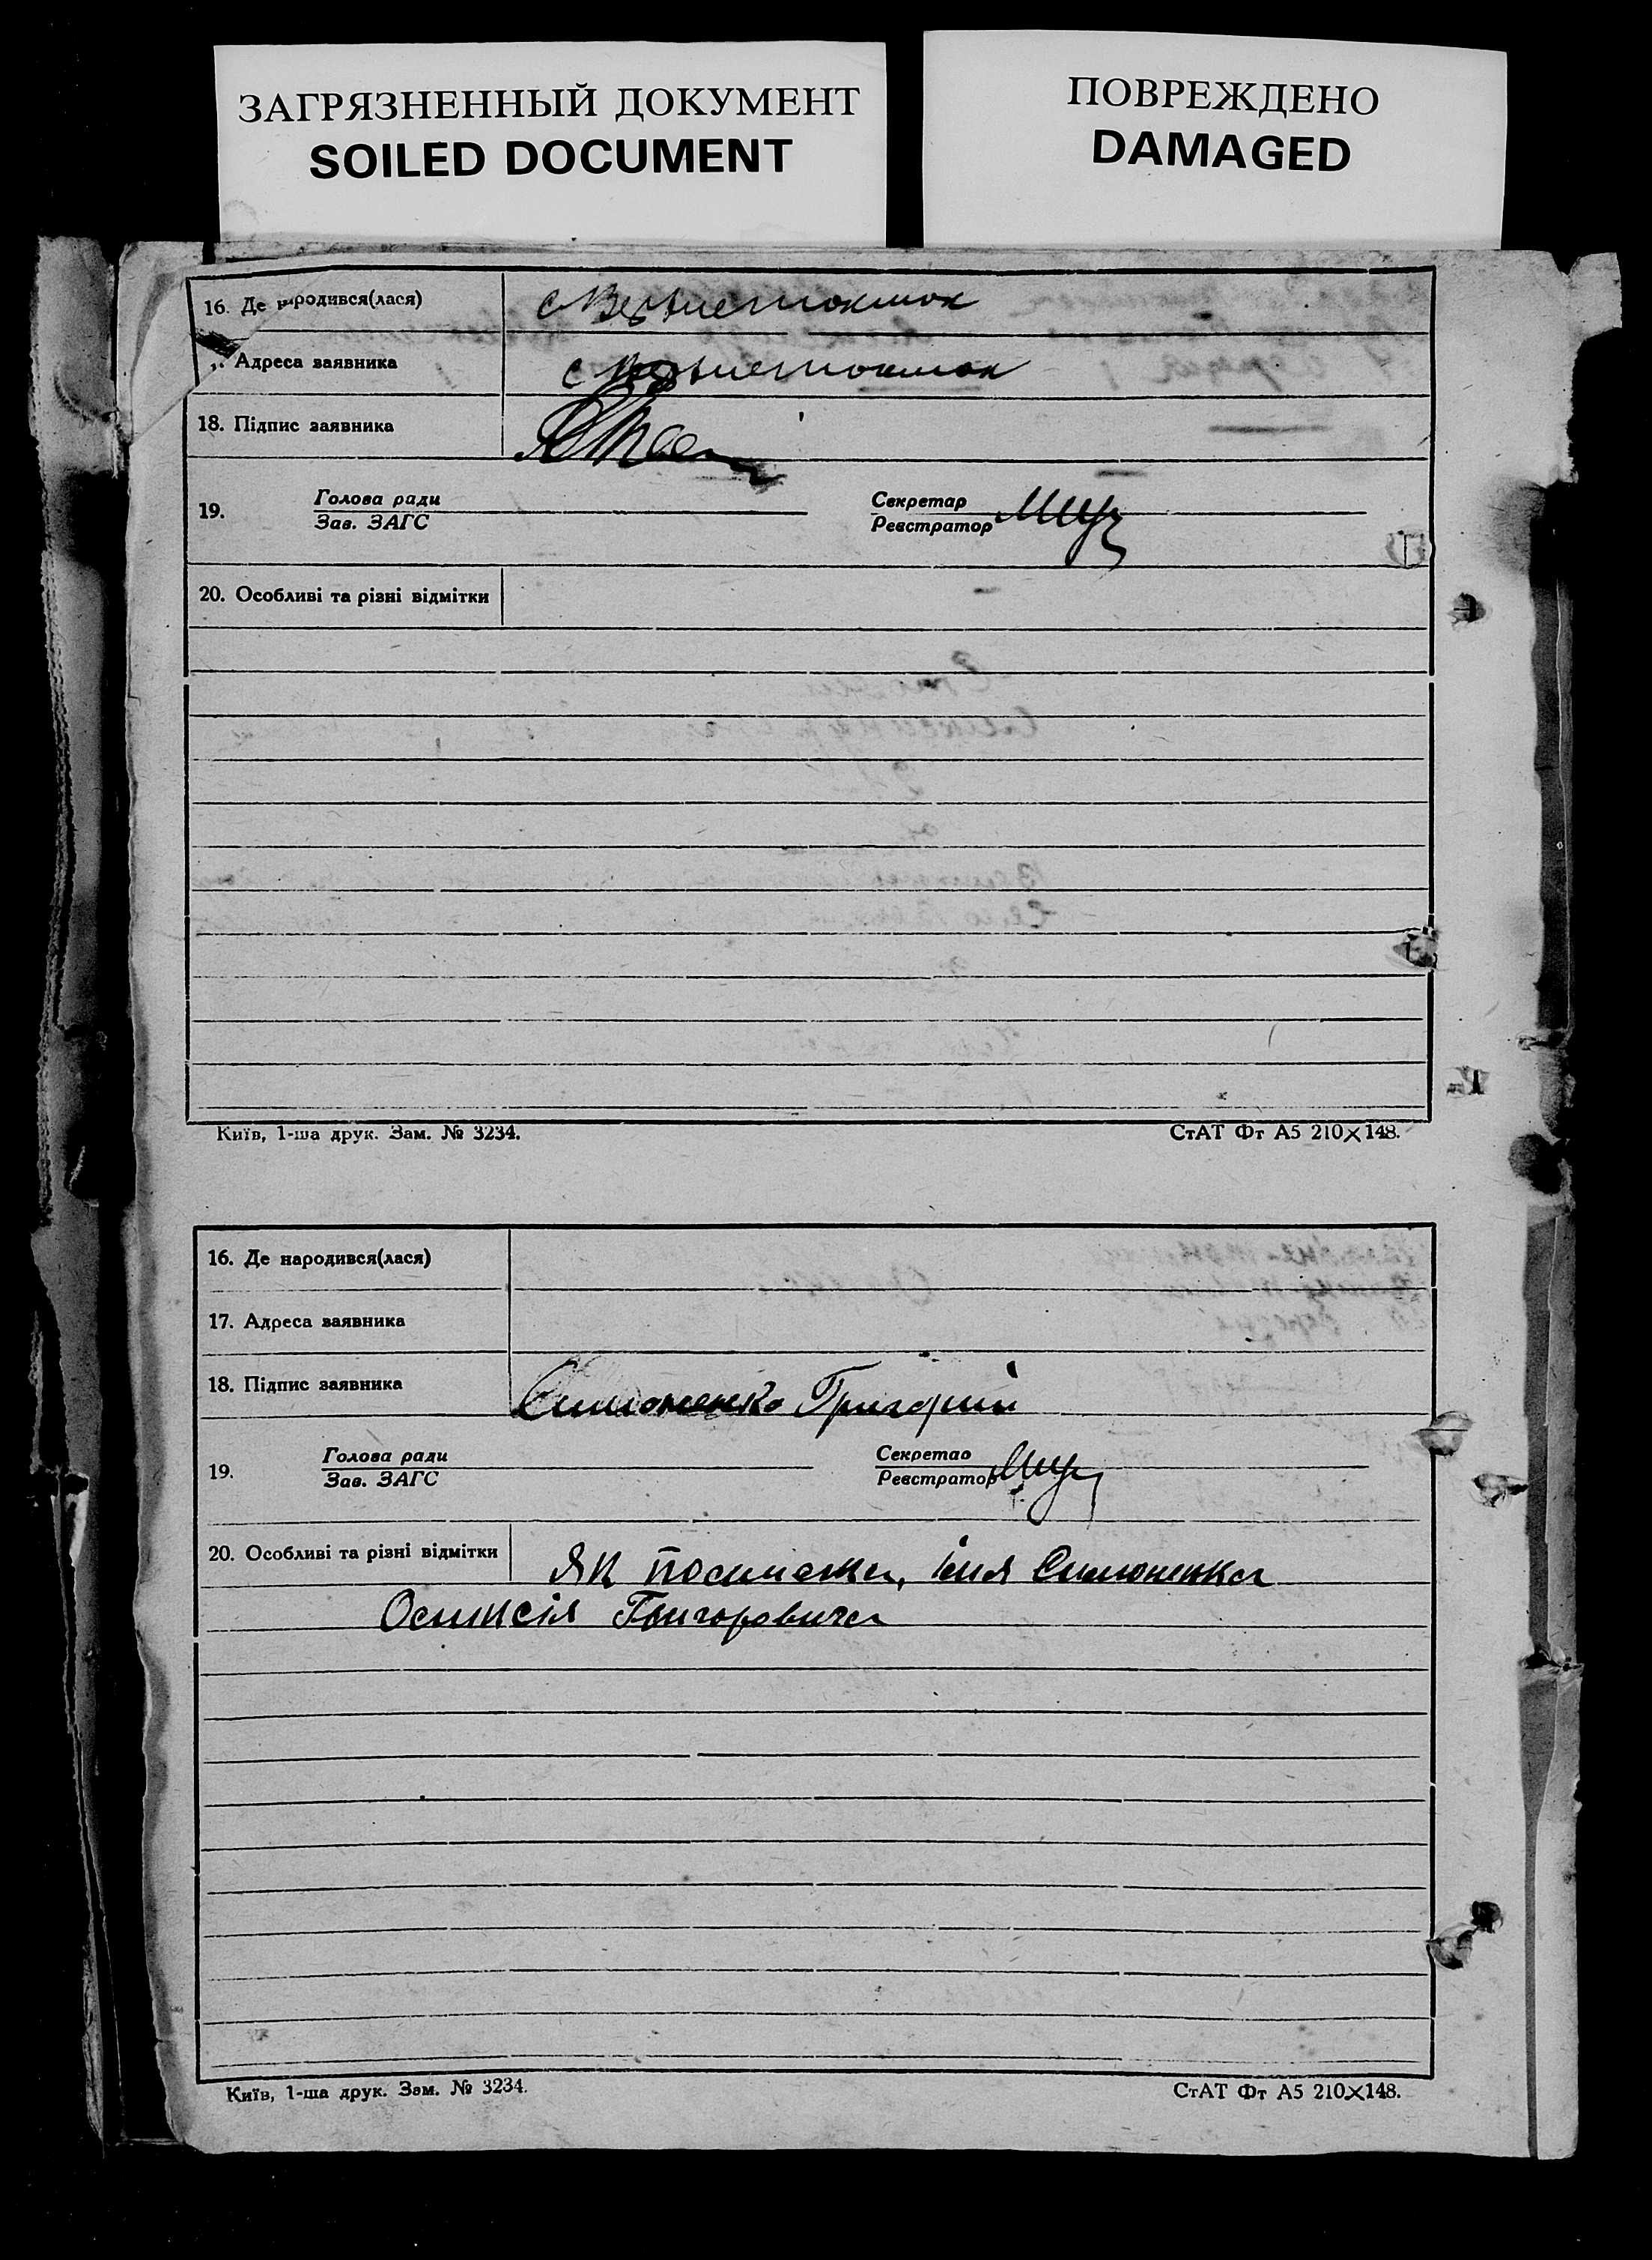 ЗАГРЯЗНЕННЫЙ ДОКУМЕНТ
SOILED DOCUMENT
ПОВРЕЖДЕНО
DAMAGED
16. Де народився(лася) с
Адреса заявника с
18. Підпис заявника
19. Голова ради Секретар
Зав. ЗАГС Реєстратор
20. Особливі та різні відмітки
Київ, 1-ша друк. Зам. № 3234. СтАТ Фт А5 210×148.
16. Де народився(лася)
17. Адреса заявника
18. Підпис заявника Симоненко Григорій
19. Голова ради Секретар
Зав. ЗАГС Реєстратор
20. Особливі та різні відмітки Як посилання, імя Симоненка
Григоровича
Київ, 1-ша друк. Зам. № 3234. СтАТ Фт А5 210×148.